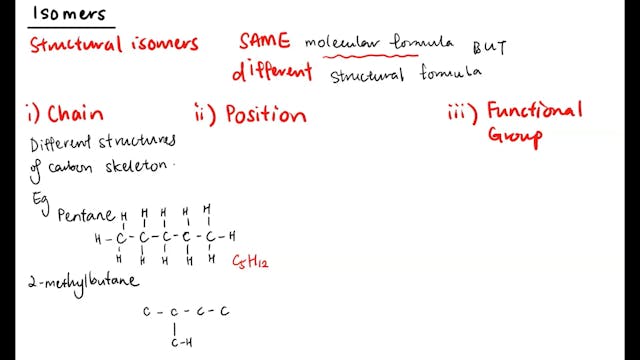 Isomers
Structural isomers SAME molecular formula BUT
different structural formula
i) Chain ii) Position iii) Functional
Group
Different structures
of carbon skeleton.
Eg
Pentane
H H H H H
H - C - C - C - C - C - H
H H H H H
C5H12
2-methylbutane
C - C - C - C
C-H